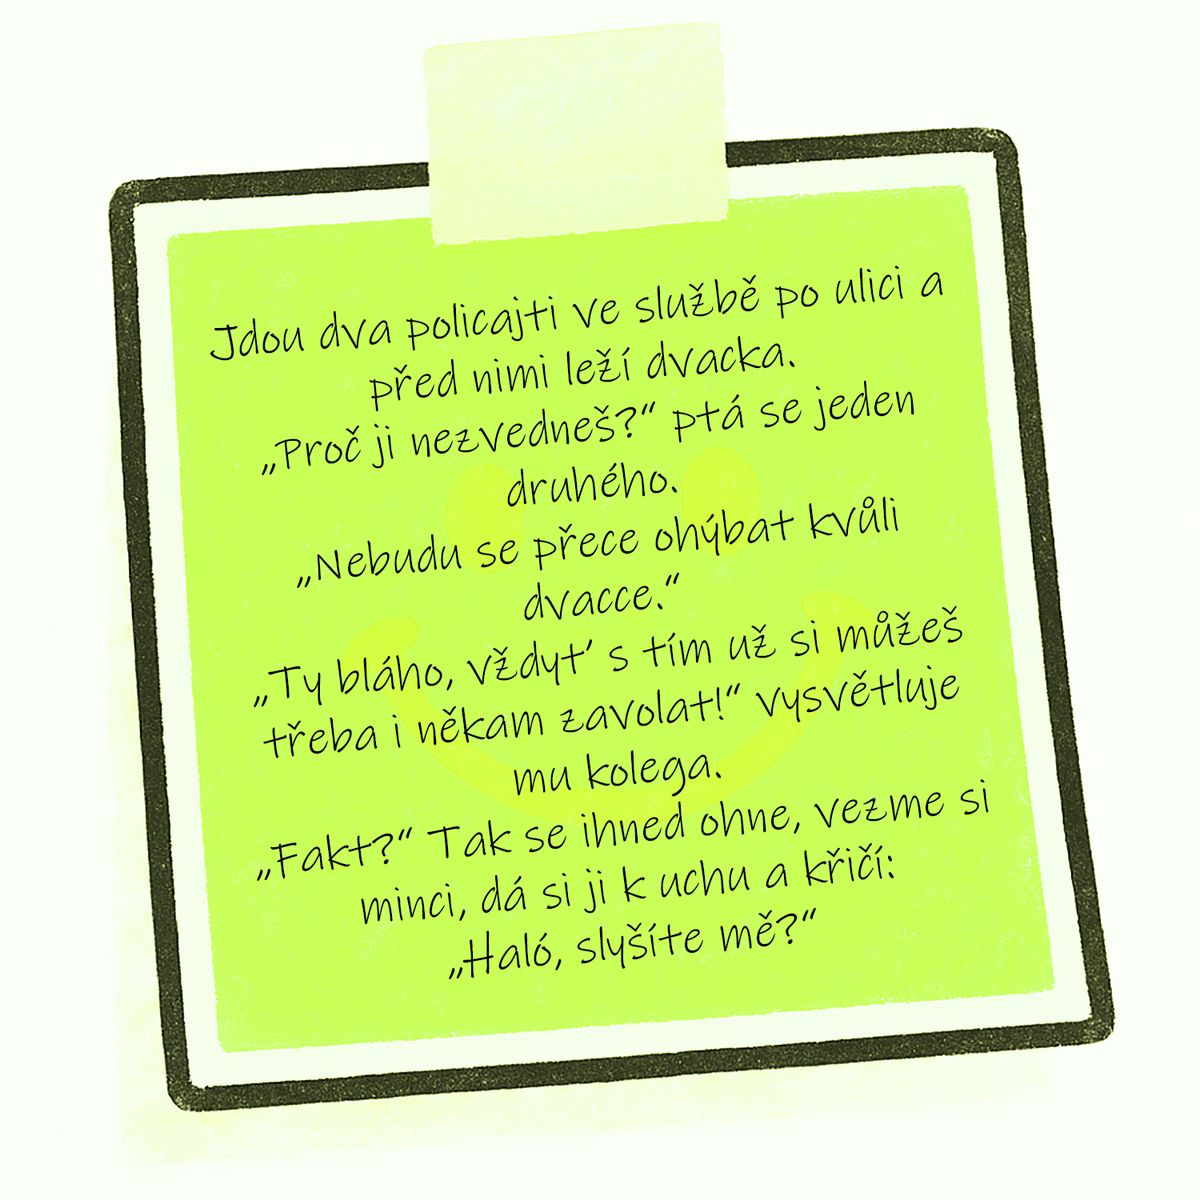 Jdou dva policajti ve službě po ulici a
před nimi leží dvacka.
„Proč ji nezvedneš?“ ptá se jeden
druhého.
„Nebudu se přece ohýbat kvůli
dvacce.“
„Ty bláho, vždyť s tím už si můžeš
třeba i někam zavolat!“ vysvětluje
mu kolega.
„Fakt?“ Tak se ihned ohne, vezme si
minci, dá si ji k uchu a křičí:
„Haló, slyšíte mě?“